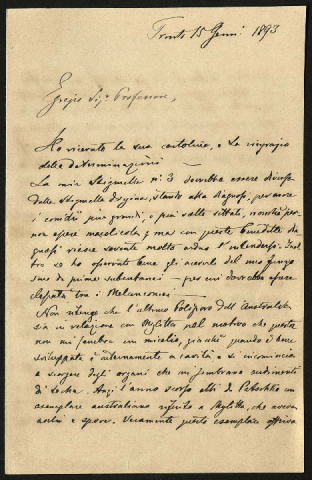 Trento 15 Genn. 1893
Egregio Sig. Professore,
Ho ricevuto la sua cartolina, e La ringrazio
delle determinazioni
La mia Stigmella n. 3 dovrebbe essere diversa
dalla Stigmella dryina, stando alla diagnosi, per avere
i conidii più grandi, e più volte settati, nonchè per
non essere macolicola; ma con queste benedette dia
gnosi riesce sovente molto arduo l'intendersi.
tro io ho osservato bene gli acervuli del mio fungo
sono da prima subcutanei per cui dovrebbe
tra i Melanconiei
Non ritengo che l'ultimo Poliporo dell'Australia
sia in relazione con Mylitta pel motivo che questa
non mi sembra un micelio, giacchè quando è bene
sviluppata è internamente a cavità, e si incomincia
a scorgere degli organi che mi sembrano rudimenti
di teche. Anzi l'anno scorso ebbi da un
esemplare australiano riferito a Mylitta, che aveva
aschi e spore. Veramente questo esemplare